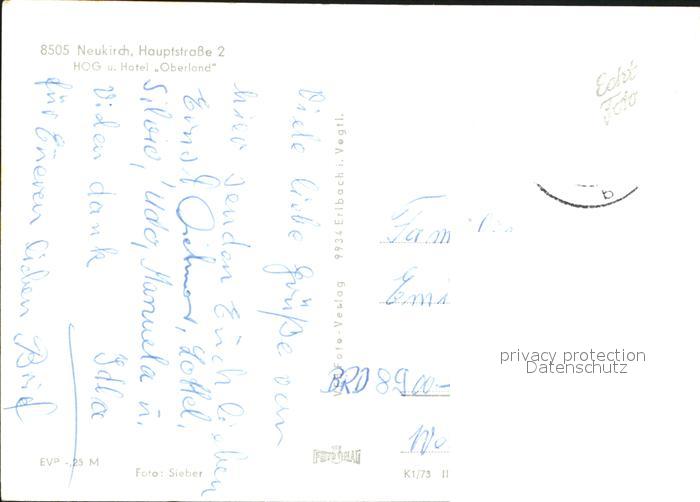 8505 Neukirch, Hauptstraße 2
HOG u. Hotel „Oberland"
Echt
Foto
Viele liebe Grüße von
hier senden Euch lieben
Ernst, Dietmar, Lottel,
Silvio, Udo, Manuela u.
Vielen dank
für Eueren lieben Brief
Foto-Verlag 9934 Erlbach i. Vogtl.
Fam
Emi
BRD 8900-
privacy protection
Datenschutz
EVP -,25 M
Foto: Sieber
K1/73